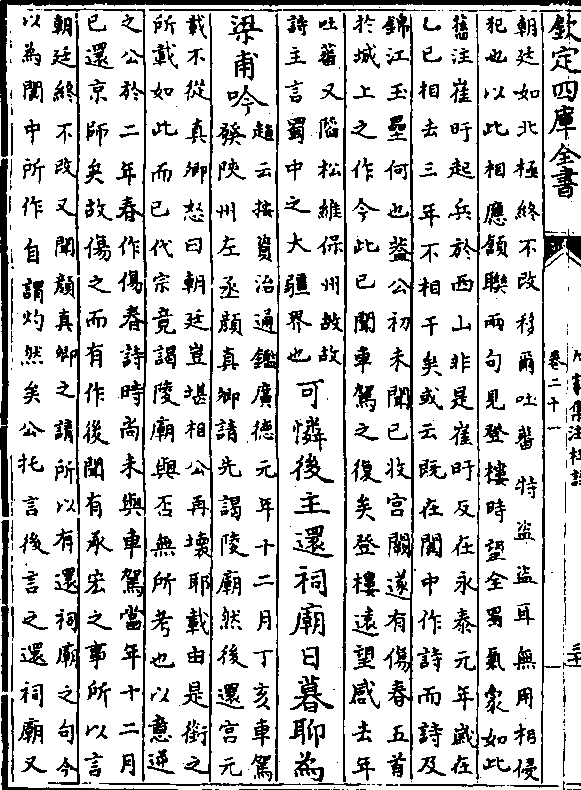 欽定四庫全書
卷二十一
朝廷如北極終不改移爾吐蕃特盜盜耳無用相侵
犯也以此相應頷聯兩句見登樓時望全蜀氣象如此
舊注崔旰起兵於西山非是崔旰反在永泰元年歲在
乙巳相去三年不相干矣或云既在閬中作詩而詩及
錦江玉壘何也蓋公初未聞已收宮闕遂有傷春五首
於城上之作今此已聞車駕之復矣登樓遠望感去年
吐蕃又陷松維保州故故
詩主言蜀中之大疆界也
可憐後主還祠廟日暮聊為
梁甫吟
趙云按資治通鑑廣德元年十二月丁亥車駕
發陜州左丞顔真卿請先謁陵廟然後還宮元
載不從真卿怒曰朝廷豈堪相公再壞耶載由是銜之
所載如此而已代宗竟謁陵廟與否無所考也以意逆
之公於二年春作傷春詩時尚未與車駕當年十二月
已還京師矣故傷之而有作後聞有承宏之事所以言
朝廷終不改又聞顔真卿之請所以有還祠廟之句今
以為閬中所作自謂灼然矣公托言後言之還祠廟又